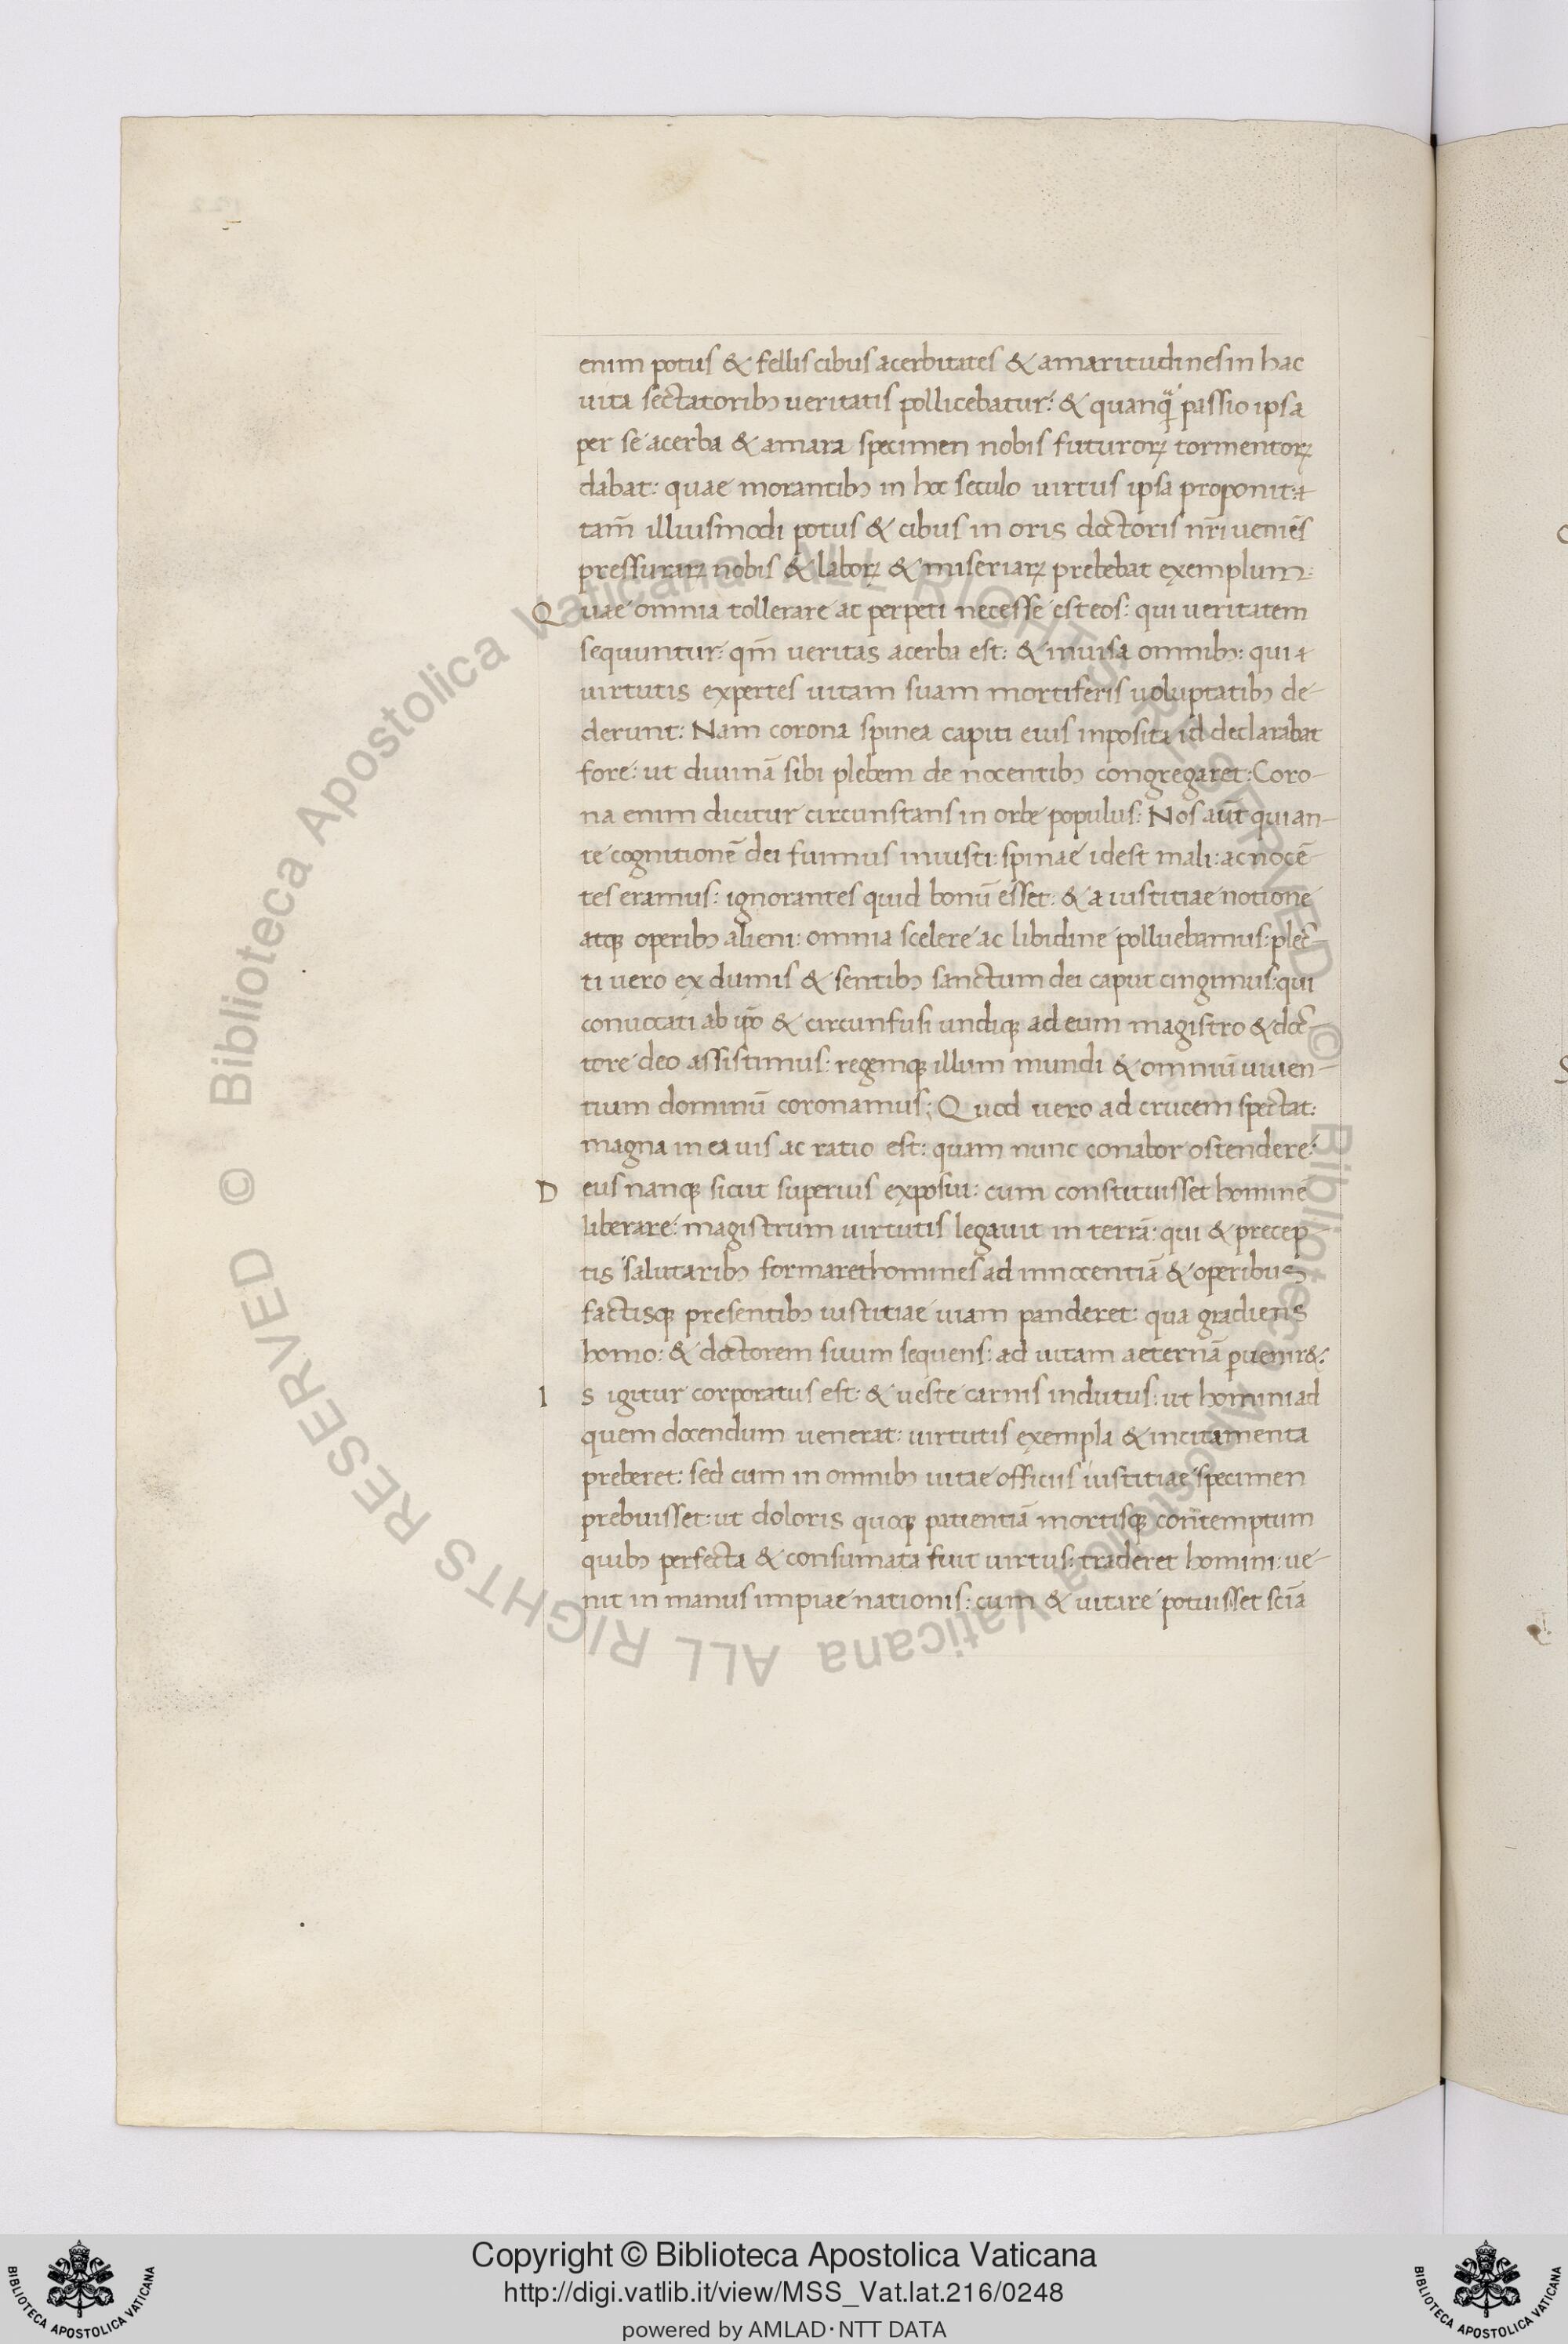 enim potus & fellis cibus acerbitates & amaritudines in hac
uita sectatoribꝫ ueritatis pollicebatur: & quanq̃ passio ipsa
per se acerba & amara specimen nobis futuroꝝ tormentoꝝ
dabat: quae morantibꝫ in hoc seculo uirtus ipsa proponit:
tam̃ illiusmodi potus & cibus in oris doctoris nr̃i ueniẽs
pressuraꝝ nobis & laboꝝ & miseriaꝝ prebebat exemplum:
Quae omnia tollerare ac perpeti necesse est eos: qui ueritatem
sequuntur: qm̃ ueritas acerba est: & inuisa omnibꝫ: qui
uirtutis expertes uitam suam mortiferis uoluptatibꝫ de-
derunt: Nam corona spinea capiti eius inposita id declarabat
fore: ut diuinã sibi plebem de nocentibꝫ congregaret: Coro-
na enim dicitur circunstans in orbe populus: Nos aũt qui an-
te cognitionẽ dei fuimus iniusti: spinae idest mali: ac nocẽ-
tes eramus: ignorantes quid bonũ esset: & a iustitiae notione
atqꝫ operibꝫ alieni: omnia scelere ac libidine polluebamus: plec-
ti uero ex dumis & sentibꝫ sanctum dei caput cingimus: qui
conuocati ab ip̃o & circunfusi undiqꝫ ad eum magistro & doc-
tore deo assistimus: regemqꝫ illum mundi & omniũ uiuen-
tium dominũ coronamus: Quod uero ad crucem spectat:
magna in ea uis ac ratio est: quam nunc conabor ostendere:
Deus nanqꝫ sicut superius exposui: cum constituisset hominẽ
liberare: magistrum uirtutis legauit in terrã: qui & precep
tis salutaribꝫ formaret homines ad innocentiã & operibus
factisqꝫ presentibꝫ iustitiae uiam panderet: qua gradiens
homo: & doctorem suum sequens: ad uitam aeternã ꝑuenir&:
Is igitur corporatus est: & ueste carnis indutus: ut homini ad
quem docendum uenerat: uirtutis exempla & incitamenta
preberet: sed cum in omnibꝫ uitae officiis iustitiae specimen
prebuisset: ut doloris quoqꝫ patientiã mortisqꝫ contemptum
quibꝫ perfecta & consumata fuit uirtus: traderet homini: ue-
nit in manus impiae nationis: cum & uitare potuisset sciã
Copyright © Biblioteca Apostolica Vaticana
http://digi.vatlib.it/view/MSS_Vat.lat.216/0248
powered by AMLAD·NTT DATA
BIBLIOTECA APOSTOLICA VATICANA
BIBLIOTECA APOSTOLICA VATICANA
© Biblioteca Apostolica Vaticana ALL RIGHTS RESERVED © Biblioteca Apostolica Vaticana ALL RIGHTS RESERVED